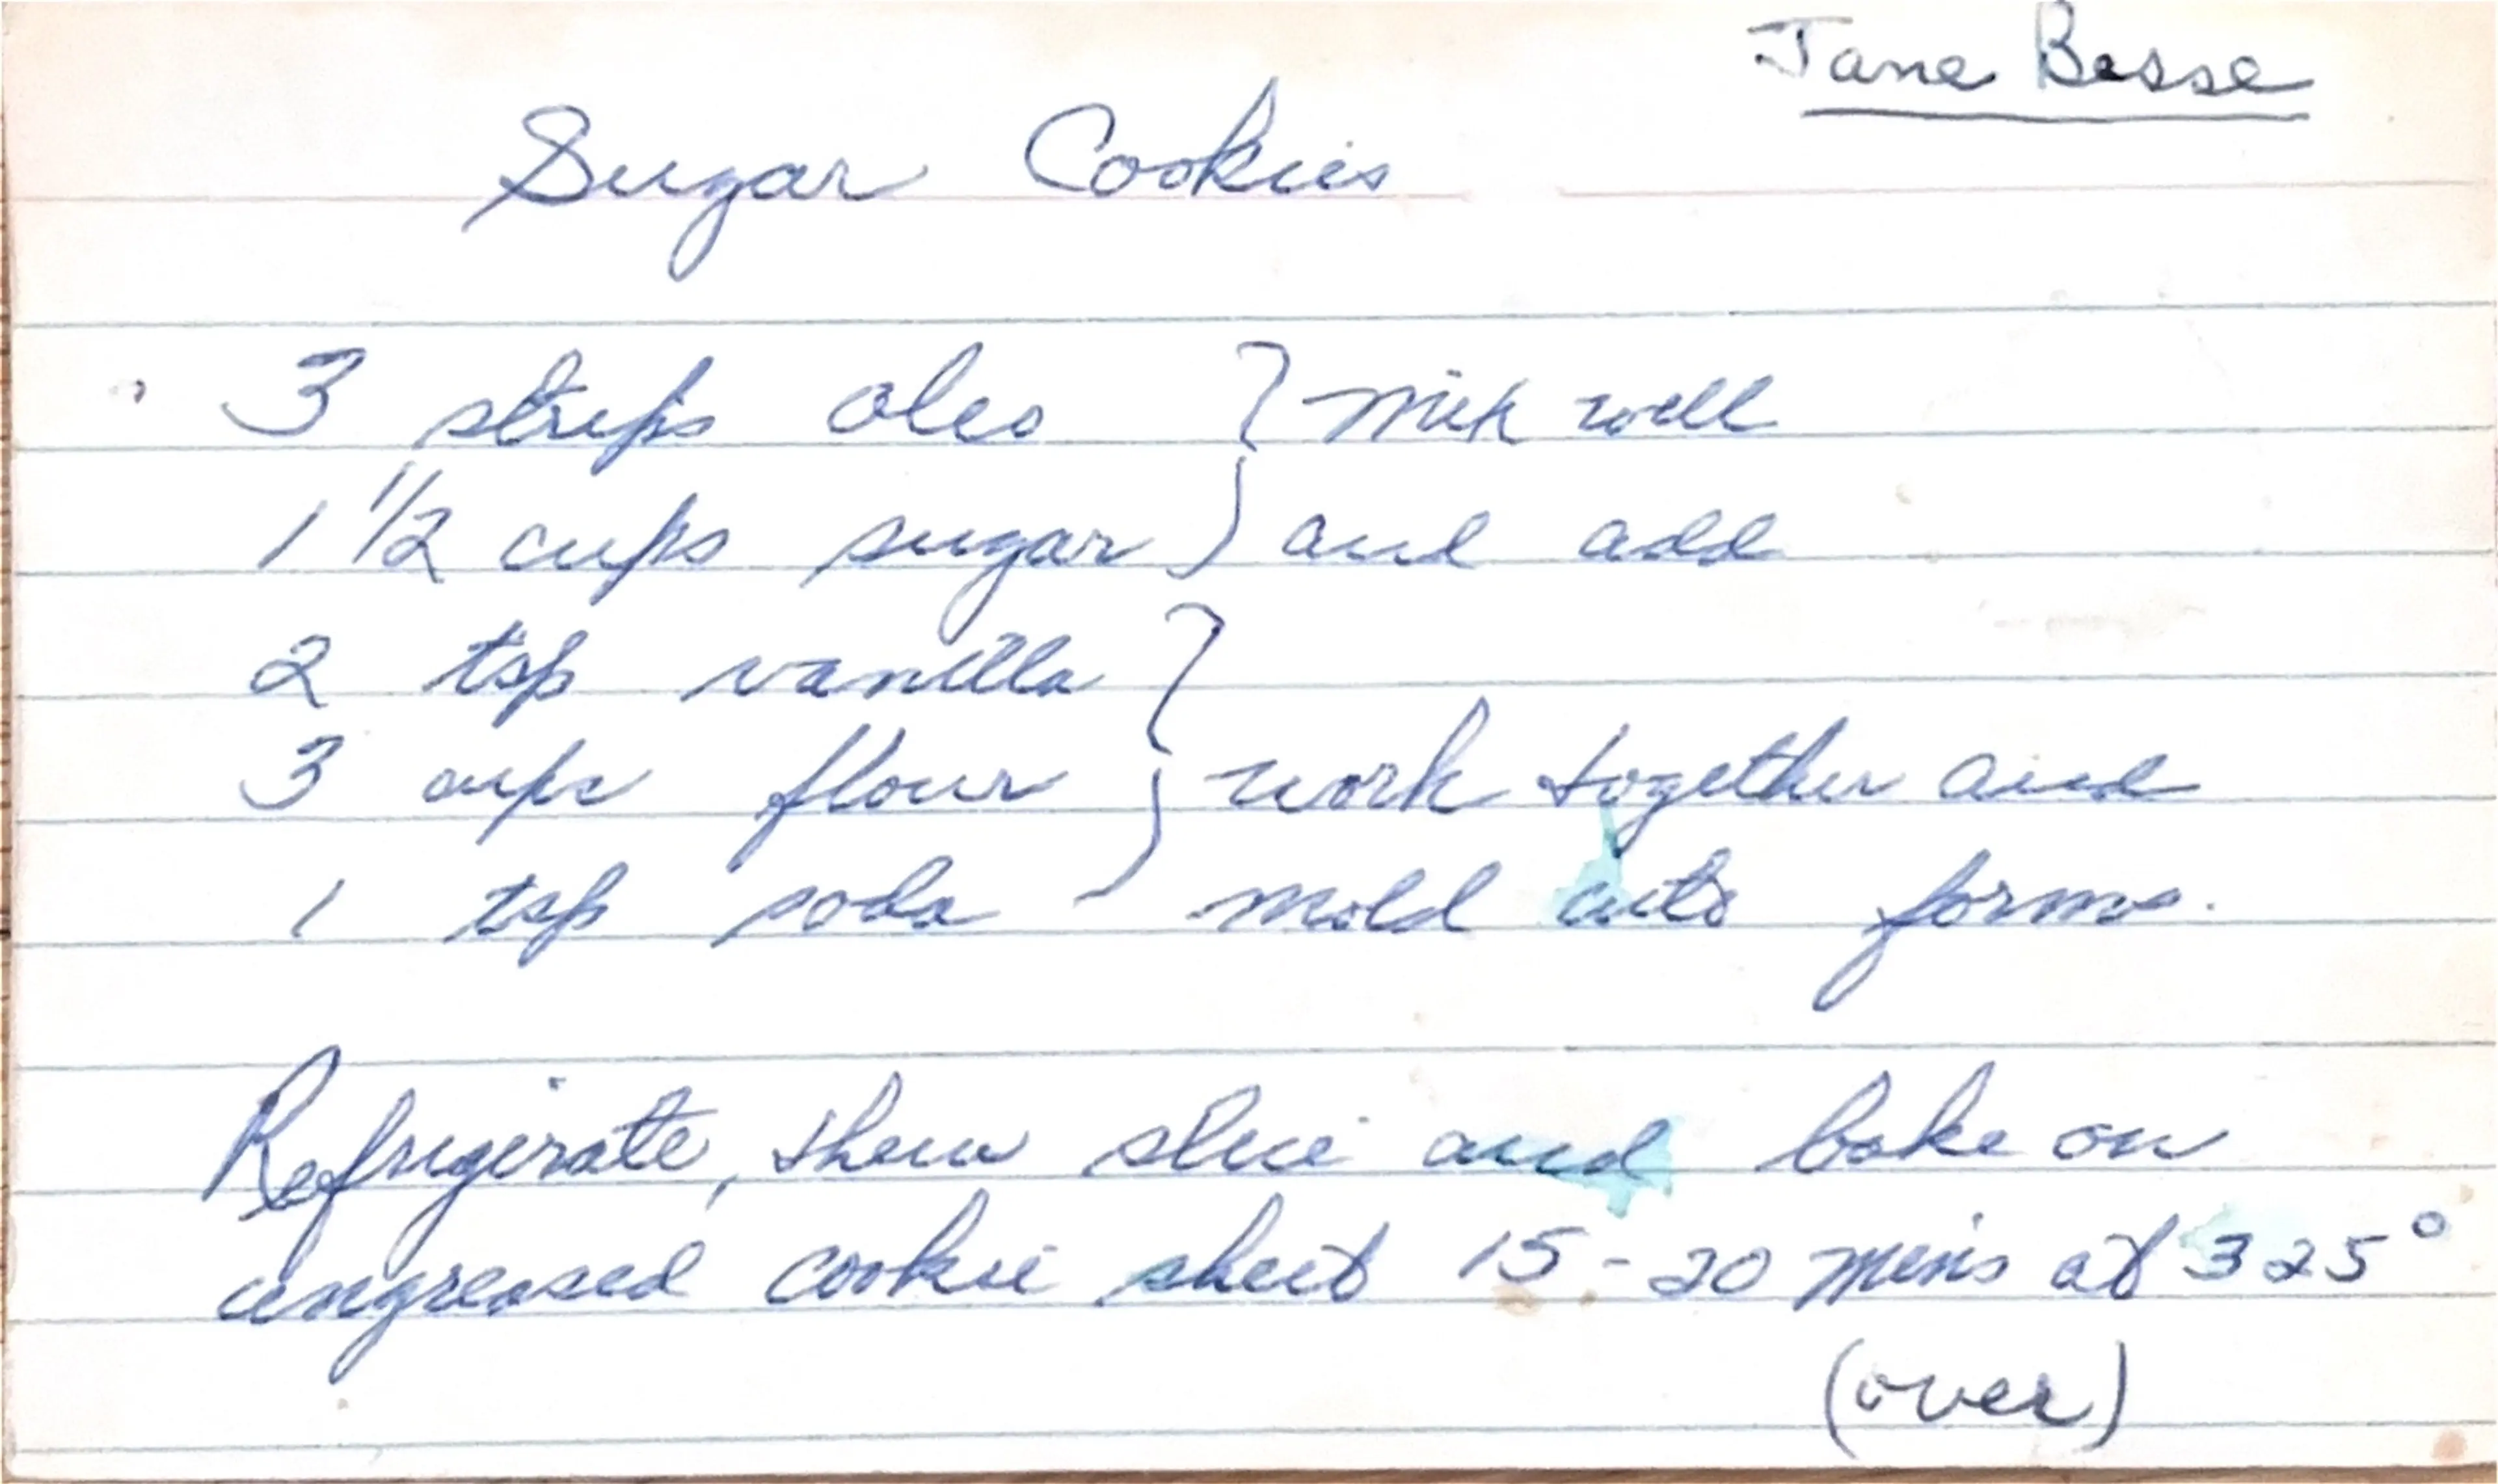 Jane Besse
Sugar Cookies
3 strips oleo } mix well
1 1/2 cups sugar } and add
2 tsp vanilla }
3 cups flour } work together and
1 tsp soda } mold into forms.
Refrigerate, then slice and bake on
ungreased cookie sheet 15-20 mins at 325°
(over)